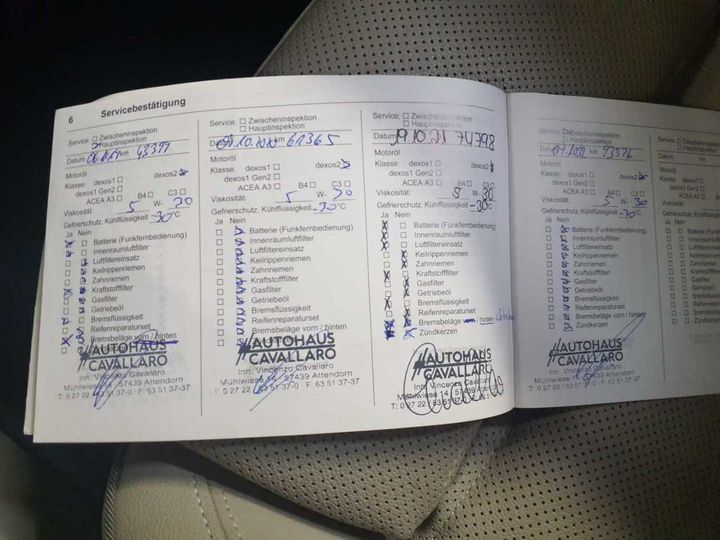 6 Servicebestätigung
Service: Zwischeninspektion
Hauptinspektion
Datum km 43399
Motoröl
Klasse: dexos1 dexos2
dexos1 Gen2
ACEA A3 B4 C3
Viskosität: 5 W- 30
Gefrierschutz, Kühlflüssigkeit -30°C
Ja Nein
Batterie (Funkfernbedienung)
Innenraumluftfilter
Luftfiltereinsatz
Keilrippenriemen
Zahnriemen
Kraftstofffilter
Gasfilter
Getriebeöl
Bremsflüssigkeit
Reifenreparaturset
Bremsbeläge vorn / hinten
AUTOHAUS
CAVALLARO
Inh. Vincenzo Cavallaro
Mühlwiese 14 57439 Attendorn
T: 0 27 22 / 63 51 37-0 F: 63 51 37-37
Service: Zwischeninspektion
Hauptinspektion
Datum 10.2020 km 61365
Motoröl
Klasse: dexos1 dexos2
dexos1 Gen2
ACEA A3 B4 C3
Viskosität: 5 W- 30
Gefrierschutz, Kühlflüssigkeit -30°C
Ja Nein
Batterie (Funkfernbedienung)
Innenraumluftfilter
Luftfiltereinsatz
Keilrippenriemen
Zahnriemen
Kraftstofffilter
Gasfilter
Getriebeöl
Bremsflüssigkeit
Reifenreparaturset
Bremsbeläge vorn / hinten
Zündkerzen
AUTOHAUS
CAVALLARO
Inh. Vincenzo Cavallaro
Mühlwiese 14 57439 Attendorn
T: 0 27 22 / 63 51 37-0 F: 63 51 37-37
Service: Zwischeninspektion
Hauptinspektion
Datum 19.10.21 74798
Motoröl
Klasse: dexos1 dexos2
dexos1 Gen2
ACEA A3 B4 C3
Viskosität: 5 W- 30
Gefrierschutz, Kühlflüssigkeit -30°C
Ja Nein
Batterie (Funkfernbedienung)
Innenraumluftfilter
Luftfiltereinsatz
Keilrippenriemen
Zahnriemen
Kraftstofffilter
Gasfilter
Getriebeöl
Bremsflüssigkeit
Reifenreparaturset
Bremsbeläge / hinten
Zündkerzen
AUTOHAUS
CAVALLARO
Inh. Vincenzo Cavallaro
Mühlwiese 14 57439 Attendorn
T: 0 27 22 / 63 51 37-0
Service: Zwischeninspektion
Hauptinspektion
Datum km
Motoröl
Klasse: dexos1 dexos2
dexos1 Gen2
ACEA A3 B4 C3
Viskosität: 5 W- 30
Gefrierschutz, Kühlflüssigkeit -30°C
Ja Nein
Batterie (Funkfernbedienung)
Innenraumluftfilter
Luftfiltereinsatz
Keilrippenriemen
Zahnriemen
Kraftstofffilter
Gasfilter
Getriebeöl
Bremsflüssigkeit
Reifenreparaturset
Bremsbeläge vorn / hinten
Zündkerzen
AUTOHAUS
CAVALLARO
Inh. Vincenzo Cavallaro